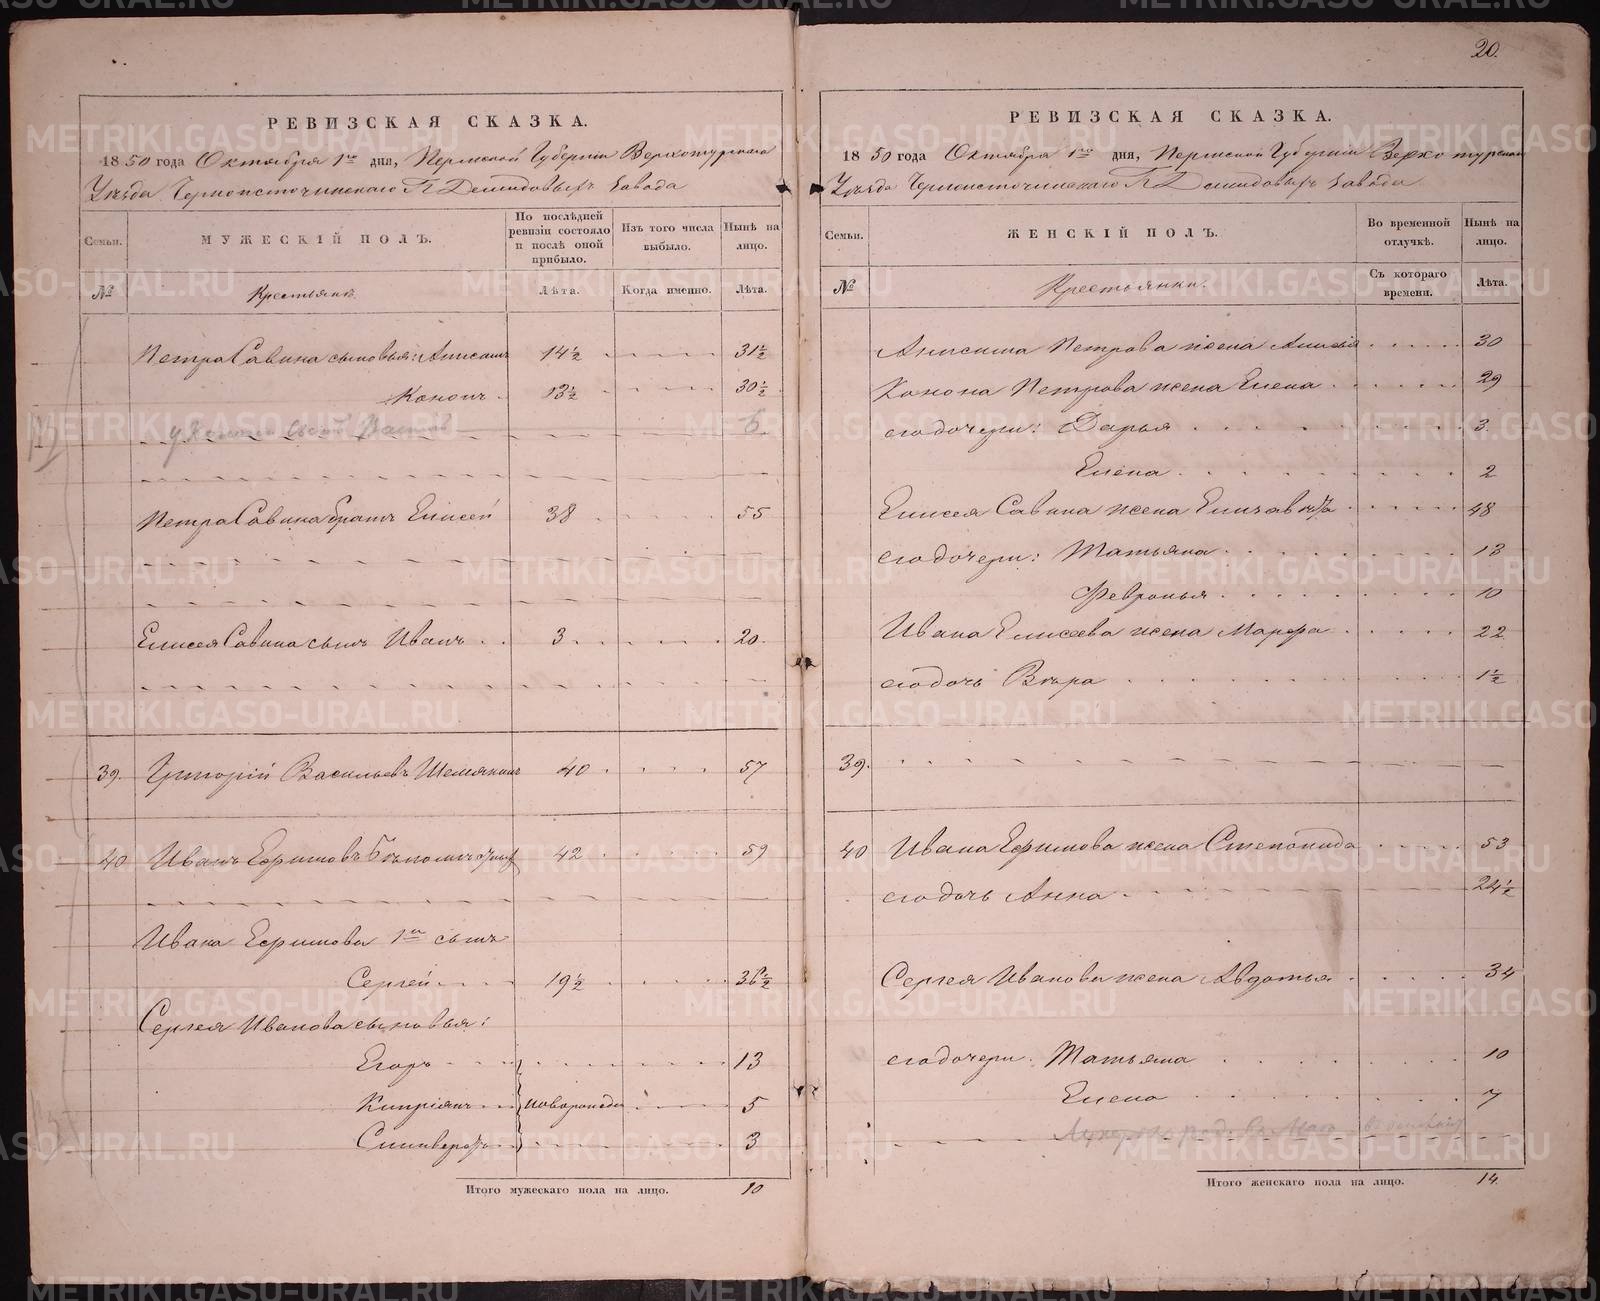 20.
РЕВИЗСКАЯ СКАЗКА.
1850 года Октября 1го дня, Пермской Губерніи Верхотурскаго
Уѣзда Черноисточинскаго Г.г. Демидовыхъ Завода
Семьи.
МУЖЕСКІЙ ПОЛЪ.
По послѣдней ревизіи состояло и послѣ оной прибыло.
Изъ того числа выбыло.
Нынѣ на лицо.
№
Крестьяне.
Лѣта.
Когда именно.
Лѣта.
Петра Савина сыновья: Анисимъ 14½ 31½
Кононъ 13½ 30½
у 6
Петра Савина братъ Елисей 38 55
Елисея Савина сынъ Иванъ 3 20.
39. Григорій Васильевъ Шемякинъ 40 57
40 Иванъ Ефимовъ 42 59
Ивана Ефимова 1й сынъ
Сергей 19½ 36½
Сергея Иванова сыновья:
Егоръ 13
Кипріянъ новорожден 5
Селиверстъ 3
Итого мужескаго пола на лицо. 10
РЕВИЗСКАЯ СКАЗКА.
1850 года Октября 1го дня, Пермской Губерніи Верхотурскаго
Уѣзда Черноисточинскаго Г.г. Демидовыхъ Завода
Семьи.
ЖЕНСКІЙ ПОЛЪ.
Во временной отлучкѣ.
Нынѣ на лицо.
№
Крестьянки.
Съ котораго времени.
Лѣта.
Анисима Петрова жена Анисья 30
Конона Петрова жена Елена 29
его дочери: Дарья 3
Елена 2
Елисея Савина жена Елизавѣта 48
его дочери: Татьяна 13
Февронья 10
Ивана Елисеева жена Марфа 22
его дочь Вѣра 1½
39.
40 Ивана Ефимова жена Степанида 53
его дочь Анна 24½
Сергея Иванова жена Авдотья 34
его дочери: Татьяна 10
Елена 7
Итого женскаго пола на лицо. 14.
METRIKI.GASO-URAL.RU